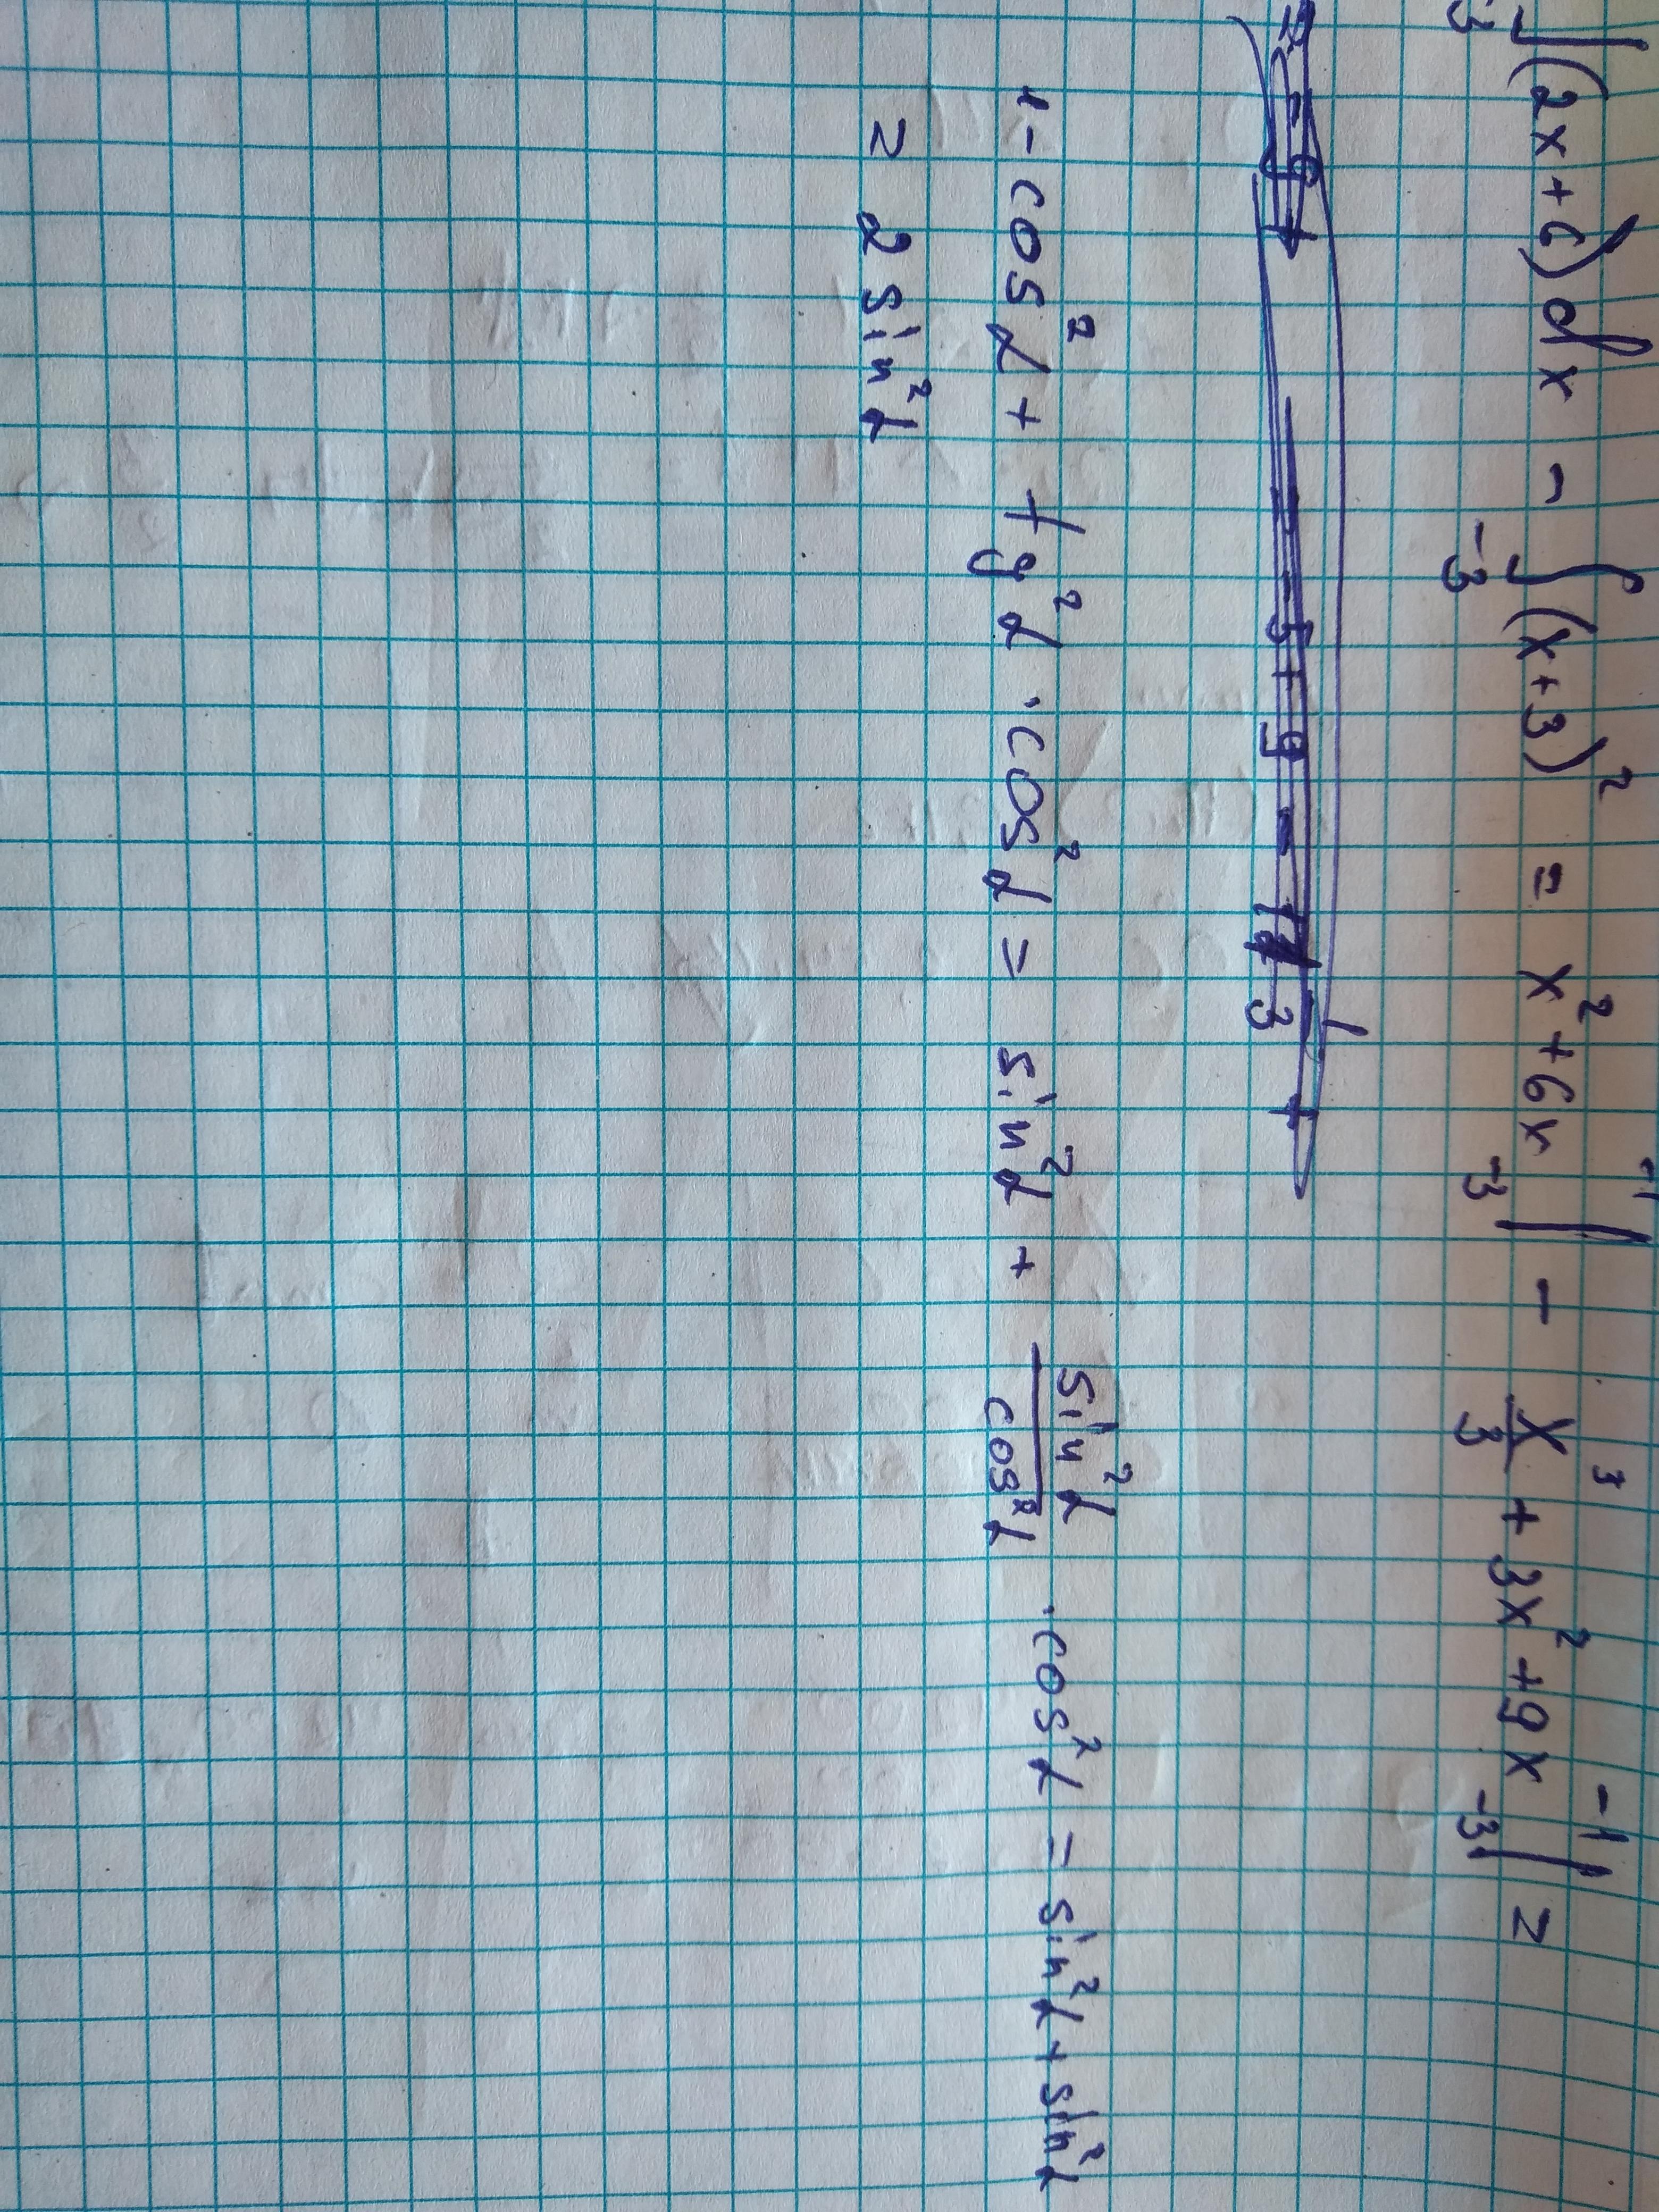 ∫₋₃ (2x+6)dx - ∫₋₃ (x+3)² = x²+6x |₋₃⁻¹ - x³/3 + 3x² + 9x |₋₃⁻¹ =
1 - cos²α + tg²α · cos²α = sin²α + sin²α/cos²α · cos²α = sin²α + sin²α
= 2 sin²α